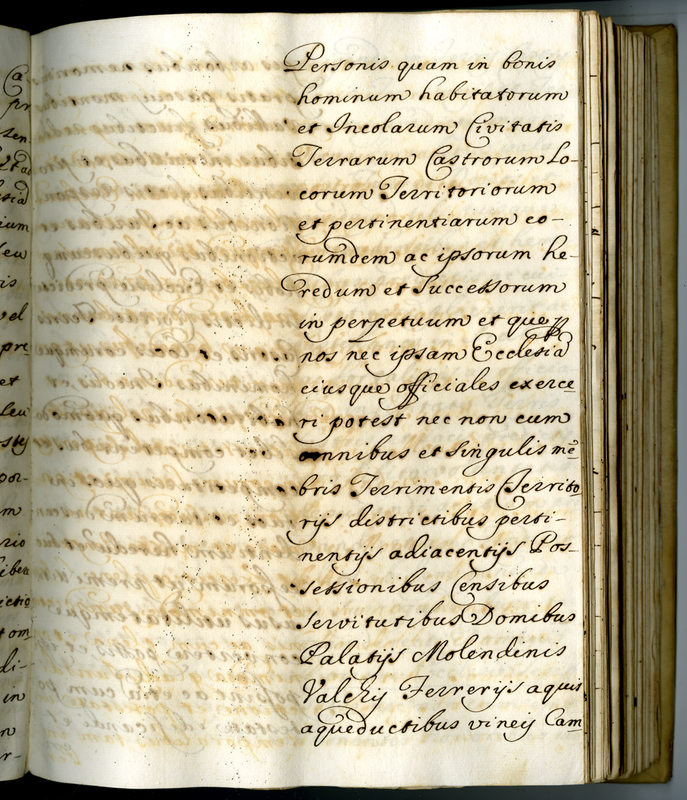 Personis quam in bonis
hominum habitatorum
et Incolarum Civitatis
Terrarum Castrorum Lo-
corum Territoriorum
et pertinentiarum eo-
rumdem ac ipsorum he-
redum et Successorum
in perpetuum et que p
nos nec ipsam Ecclesiã
eiusque officiales exerce
ri potest nec non cum
omnibus et singulis mẽ
bris Terrimentis Territo
rijs districtibus perti-
nentijs adiacentijs Pos-
sessionibus Censibus
servitutibus Domibus
Palatijs Molendinis
Valchij Ferrerijs aquis
aqueductibus vineij Cam